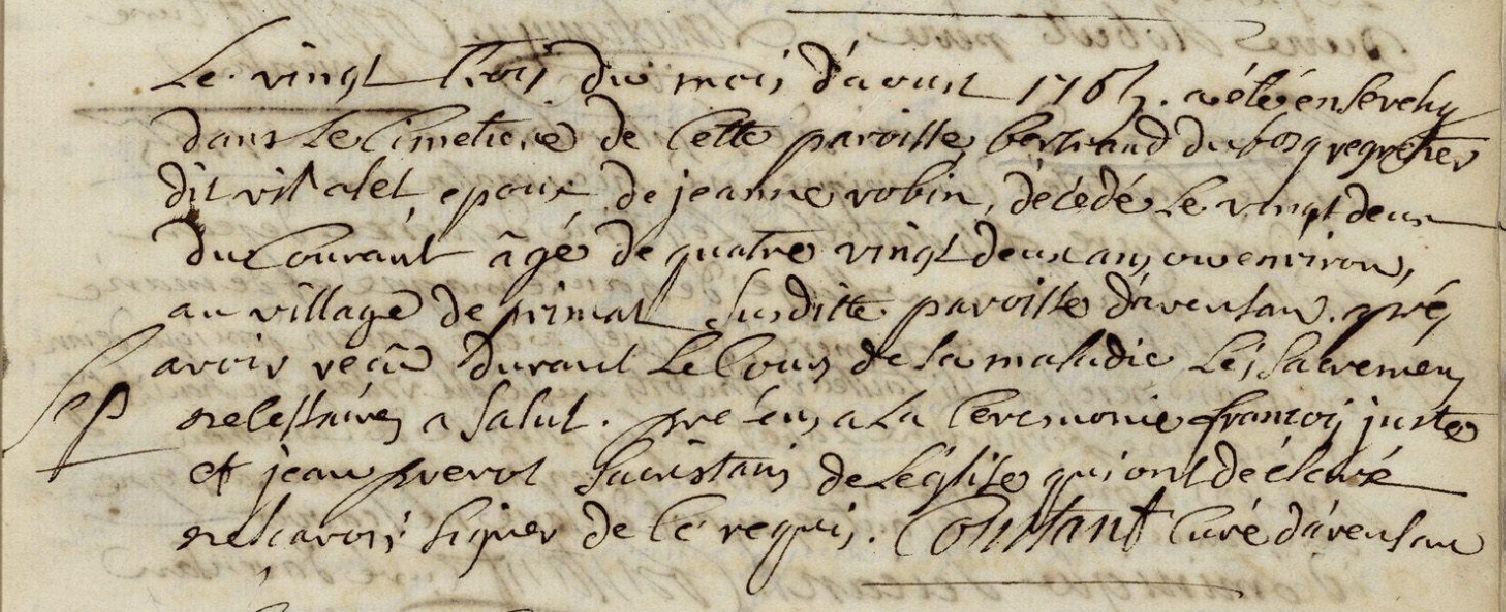 Le vingt trois du mois d'aoust 176 a été ensevely
dans le cimetiere de cette paroisse, bertrand dubosq
dit vitalet, epoux de jeanne robin, décédé le vingt deux
du courant âgé de quatre vingt deux ans ou environ,
au village de primat susditte paroisse d'avensan. après
avoir reçû durant le cours de sa maladie les sacremens
sep necessaires a salut. présens a la ceremonie françois juste
et jean prevot sacristains de l'église qui ont déclaré
ne scavoir signer de ce requis. Constant curé d'avensan